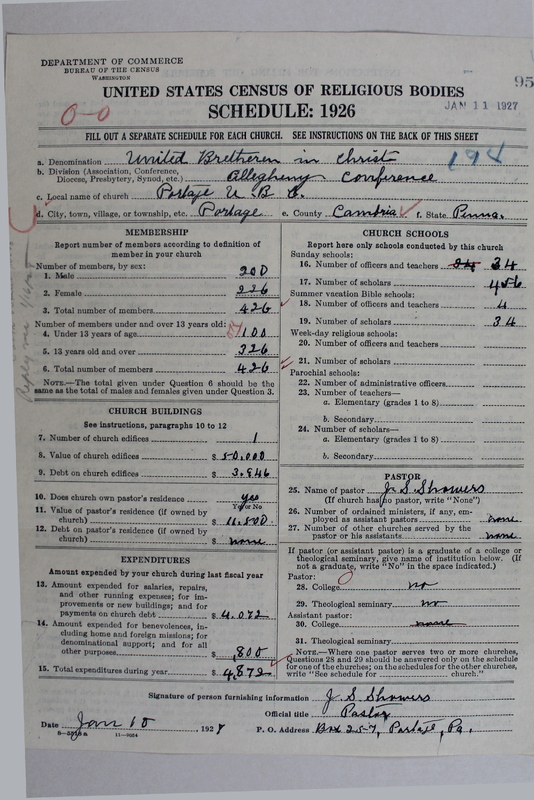 DEPARTMENT OF COMMERCE
BUREAU OF THE CENSUS
WASHINGTON
UNITED STATES CENSUS OF RELIGIOUS BODIES
95
JAN 11 1927
0-0
SCHEDULE: 1926
FILL OUT A SEPARATE SCHEDULE FOR EACH CHURCH. SEE INSTRUCTIONS ON THE BACK OF THIS SHEET
a. Denomination United Bretheren in Christ
194
b. Division (Association, Conference, Diocese, Presbytery, Synod, etc.) Allegheny Conference
c. Local name of church Portage U. B. C.
d. City, town, village, or township, etc. Portage e. County Cambria f. State Penna.
MEMBERSHIP
Report number of members according to definition of
member in your church
Number of members, by sex:
1. Male 200
2. Female 226
3. Total number of members 426
Number of members under and over 13 years old:
4. Under 13 years of age 100
5. 13 years old and over 326
6. Total number of members 426
NOTE.—The total given under Question 6 should be the
same as the total of males and females given under Question 3.
CHURCH BUILDINGS
See instructions, paragraphs 10 to 12
7. Number of church edifices 1
8. Value of church edifices $ 50,000
9. Debt on church edifices $ 3,946
10. Does church own pastor's residence yes
Yes or No
11. Value of pastor's residence (if owned by
church) $ 11,500
12. Debt on pastor's residence (if owned by
church) $ none
EXPENDITURES
Amount expended by your church during last fiscal year
13. Amount expended for salaries, repairs,
and other running expenses; for im-
provements or new buildings; and for
payments on church debt $ 4,072
14. Amount expended for benevolences, in-
cluding home and foreign missions; for
denominational support; and for all
other purposes 800
15. Total expenditures during year $ 4,872
CHURCH SCHOOLS
Report here only schools conducted by this church
Sunday schools:
16. Number of officers and teachers 34
17. Number of scholars 456
Summer vacation Bible schools:
18. Number of officers and teachers 4
19. Number of scholars 34
Week-day religious schools:
20. Number of officers and teachers
21. Number of scholars
Parochial schools:
22. Number of administrative officers
23. Number of teachers—
a. Elementary (grades 1 to 8)
b. Secondary
24. Number of scholars—
a. Elementary (grades 1 to 8)
b. Secondary
PASTOR
25. Name of pastor J. S. Showers
(If church has no pastor, write "None")
26. Number of ordained ministers, if any, em-
ployed as assistant pastors none
27. Number of other churches served by the
pastor or his assistants none
If pastor (or assistant pastor) is a graduate of a college or
theological seminary, give name of institution below. (If
not a graduate, write "No" in the space indicated.)
Pastor:
28. College no
29. Theological seminary no
Assistant pastor:
30. College none
31. Theological seminary
NOTE.—Where one pastor serves two or more churches,
Questions 28 and 29 should be answered only on the schedule
for one of the churches; on the schedules for the other churches,
write "See schedule for church."
Signature of person furnishing information J. S. Showers
Official title Pastor
Date Jan 10, 1927
P. O. Address Box 257, Portage, Pa.